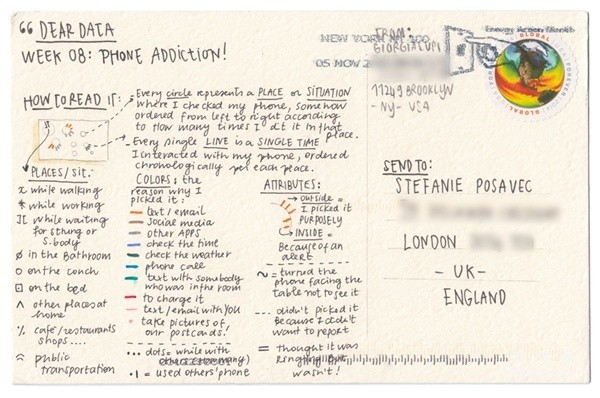 “ DEAR DATA
WEEK 08: PHONE ADDICTION!
HOW TO READ IT:
Every circle represents a PLACE or SITUATION
where I checked my phone, somehow
ordered from left to right according
to how many times I did it in that place.
Every single LINE is a SINGLE TIME
I interacted with my phone, ordered
chronologically per each peace.
PLACES/SIT.
x while walking
* while working
while waiting
for sthing or
s.body
ø in the bathroom
o on the couch
⊡ on the bed
^ other places at
home
% cafe/restaurants
shops....
public
transportation
COLORS: the
reason why I
picked it:
text/email
social media
other APPS
check the time
check the weather
phone call
text with somebody
who was in the room
to charge it
text/email with YOU
take pictures of
our postcards!
... dots = while with
others
•| = used others' phone
ATTRIBUTES:
outside =
I picked it
PURPOSELY
INSIDE =
Because of an
alert
~ = turned the
phone facing the
table not to see it
--- didn't picked it
because I didn't
want to report
= thought it was
ringing but
wasn't!
FROM:
GIORGIA LUPI
11249 BROOKLYN
- NY - USA
NEW YORK NY 100
05 NOV 2
GLOBAL
FOREVER
SEND TO:
STEFANIE POSAVEC
LONDON
- UK -
ENGLAND